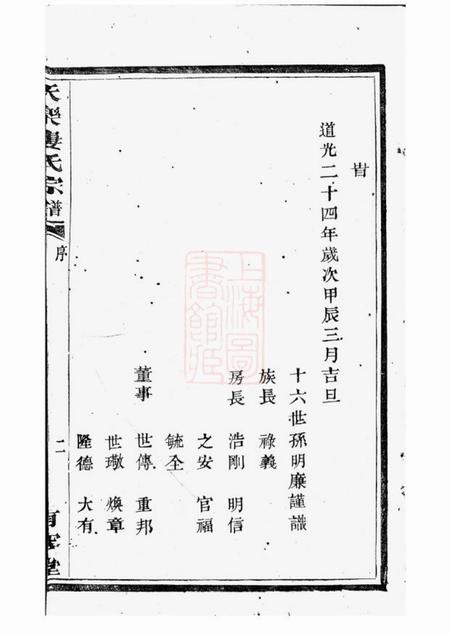 旹
道光二十四年歲次甲辰三月吉旦
十六世孫明廉謹識
族長 祿義
房長 浩剛 明信
之安 官福
毓全
董事 世傳 重邦
世璥 煥章
隆德 大有
天樂婁氏宗譜
序
二
上海圖書館藏